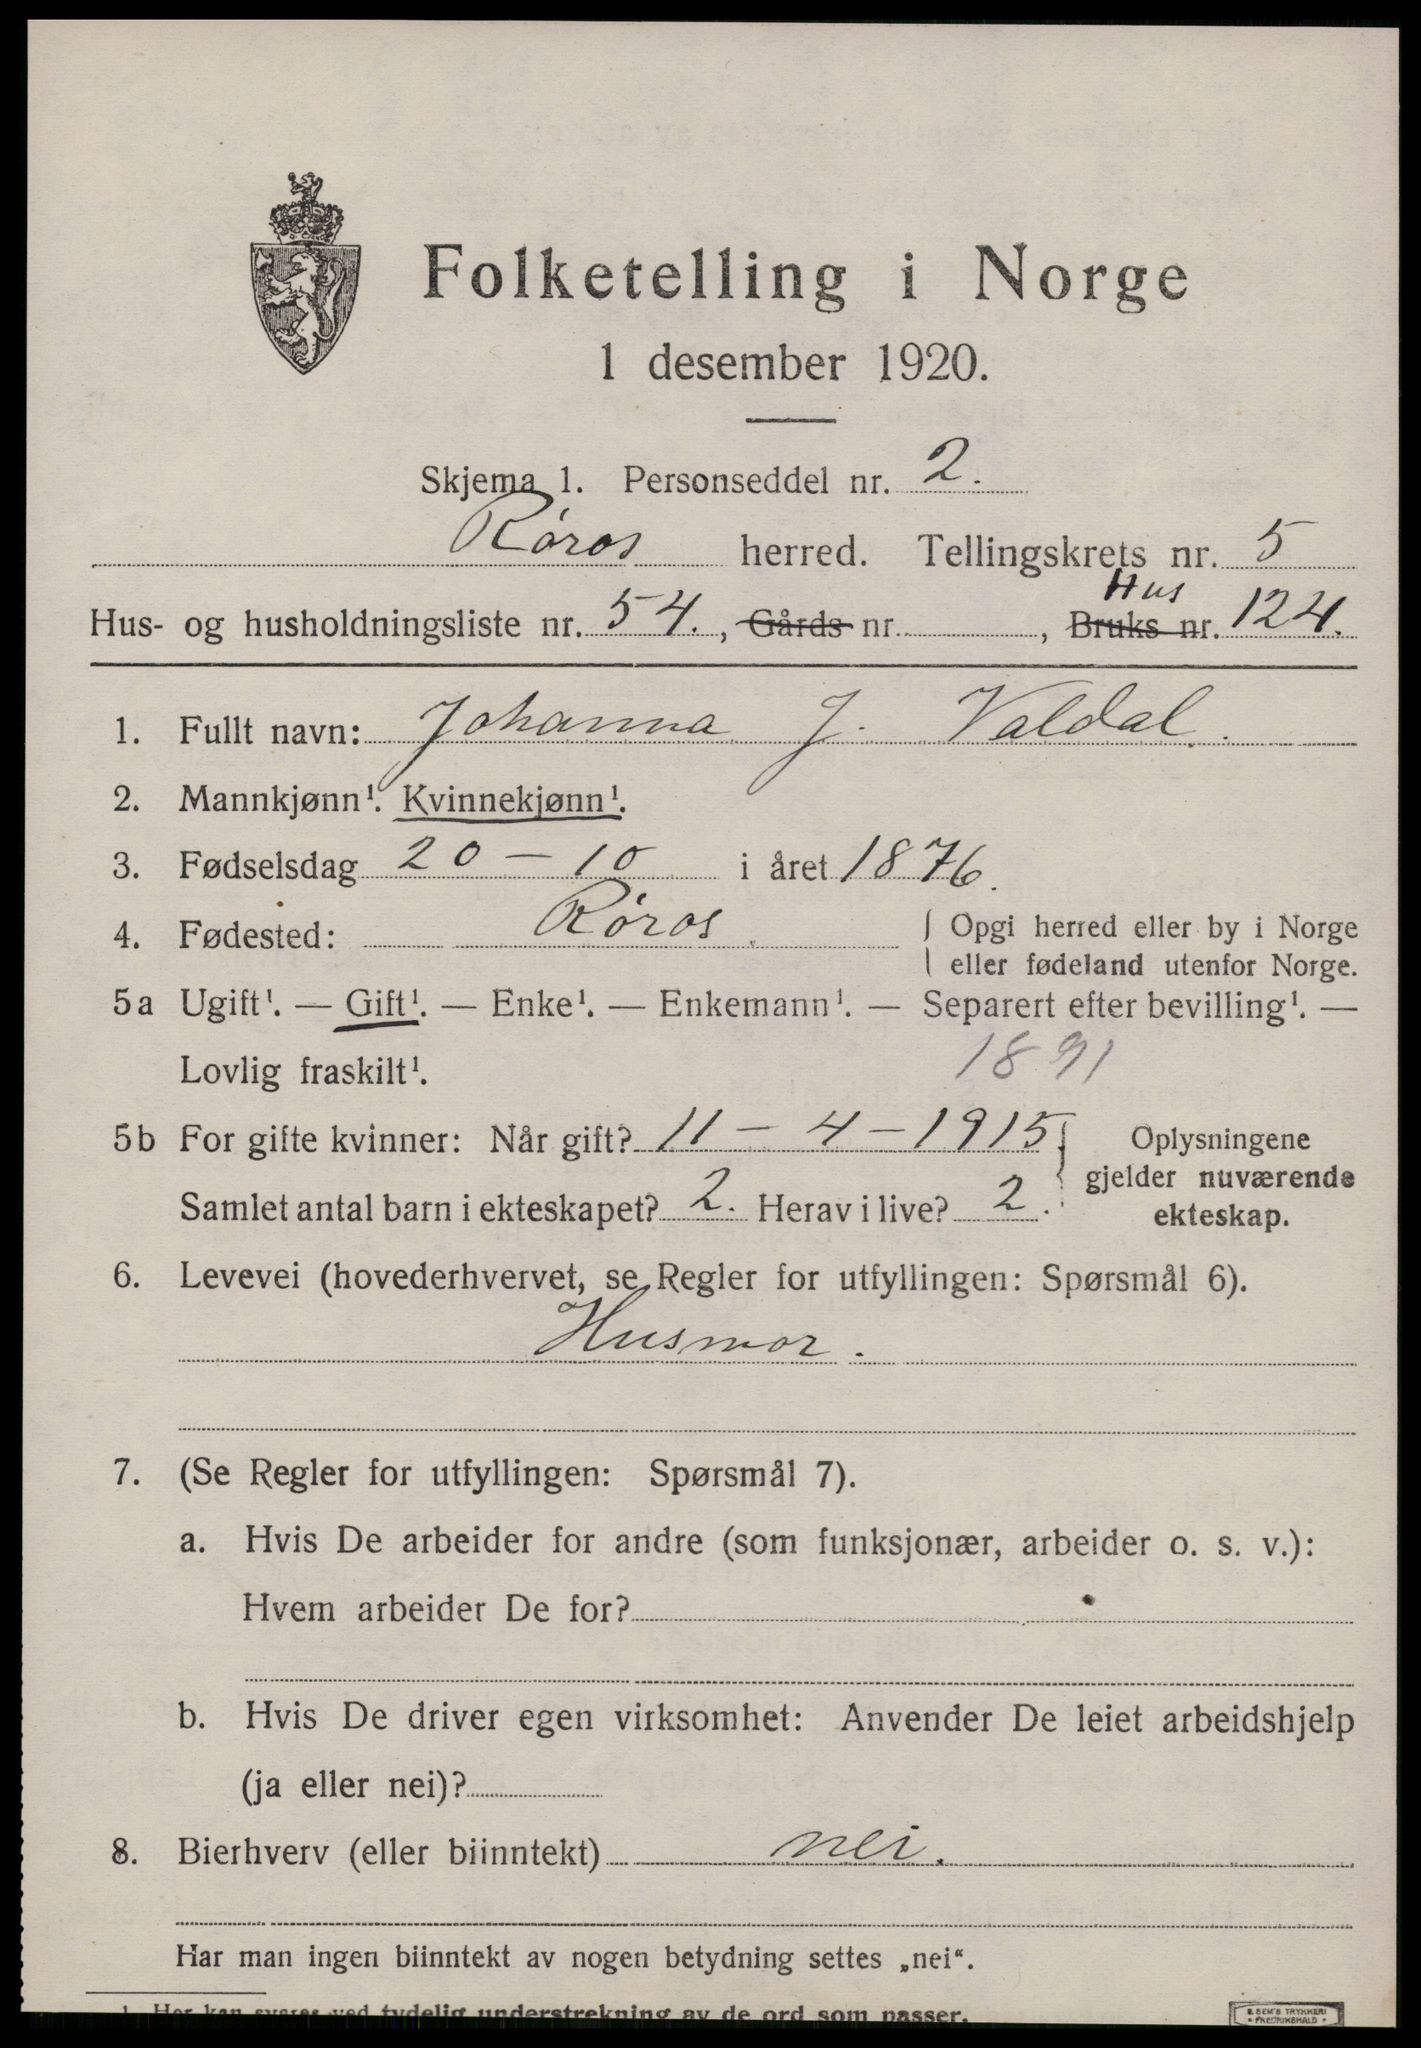 Folketelling i Norge
1 desember 1920.
Skjema 1. Personseddel nr. 2.
Røros herred. Tellingskrets nr. 5
Hus
Hus- og husholdningsliste nr. 54., Gårds nr. , Bruks nr. 124.
1. Fullt navn: Johanna J. Valdal.
2. Mannkjønn¹. Kvinnekjønn¹.
3. Fødselsdag 20 — 10 i året 1876.
4. Fødested: Røros. { Opgi herred eller by i Norge
eller fødeland utenfor Norge.
5a Ugift¹. — Gift¹. — Enke¹. — Enkemann¹. — Separert efter bevilling¹. —
Lovlig fraskilt¹. 1891
5b For gifte kvinner: Når gift? 11 — 4 — 1915 } Oplysningene
gjelder nuværende
Samlet antal barn i ekteskapet? 2. Herav i live? 2. ekteskap.
6. Levevei (hovederhvervet, se Regler for utfyllingen: Spørsmål 6).
Husmor.
7. (Se Regler for utfyllingen: Spørsmål 7).
a. Hvis De arbeider for andre (som funksjonær, arbeider o. s. v.):
Hvem arbeider De for?
b. Hvis De driver egen virksomhet: Anvender De leiet arbeidshjelp
(ja eller nei)?
8. Bierhverv (eller biinntekt) nei.
Har man ingen biinntekt av nogen betydning settes „nei“.
1. Her kan svares ved tydelig understrekning av de ord som passer.
E. SEM'S TRYKKERI
• FREDRIKSHALD •